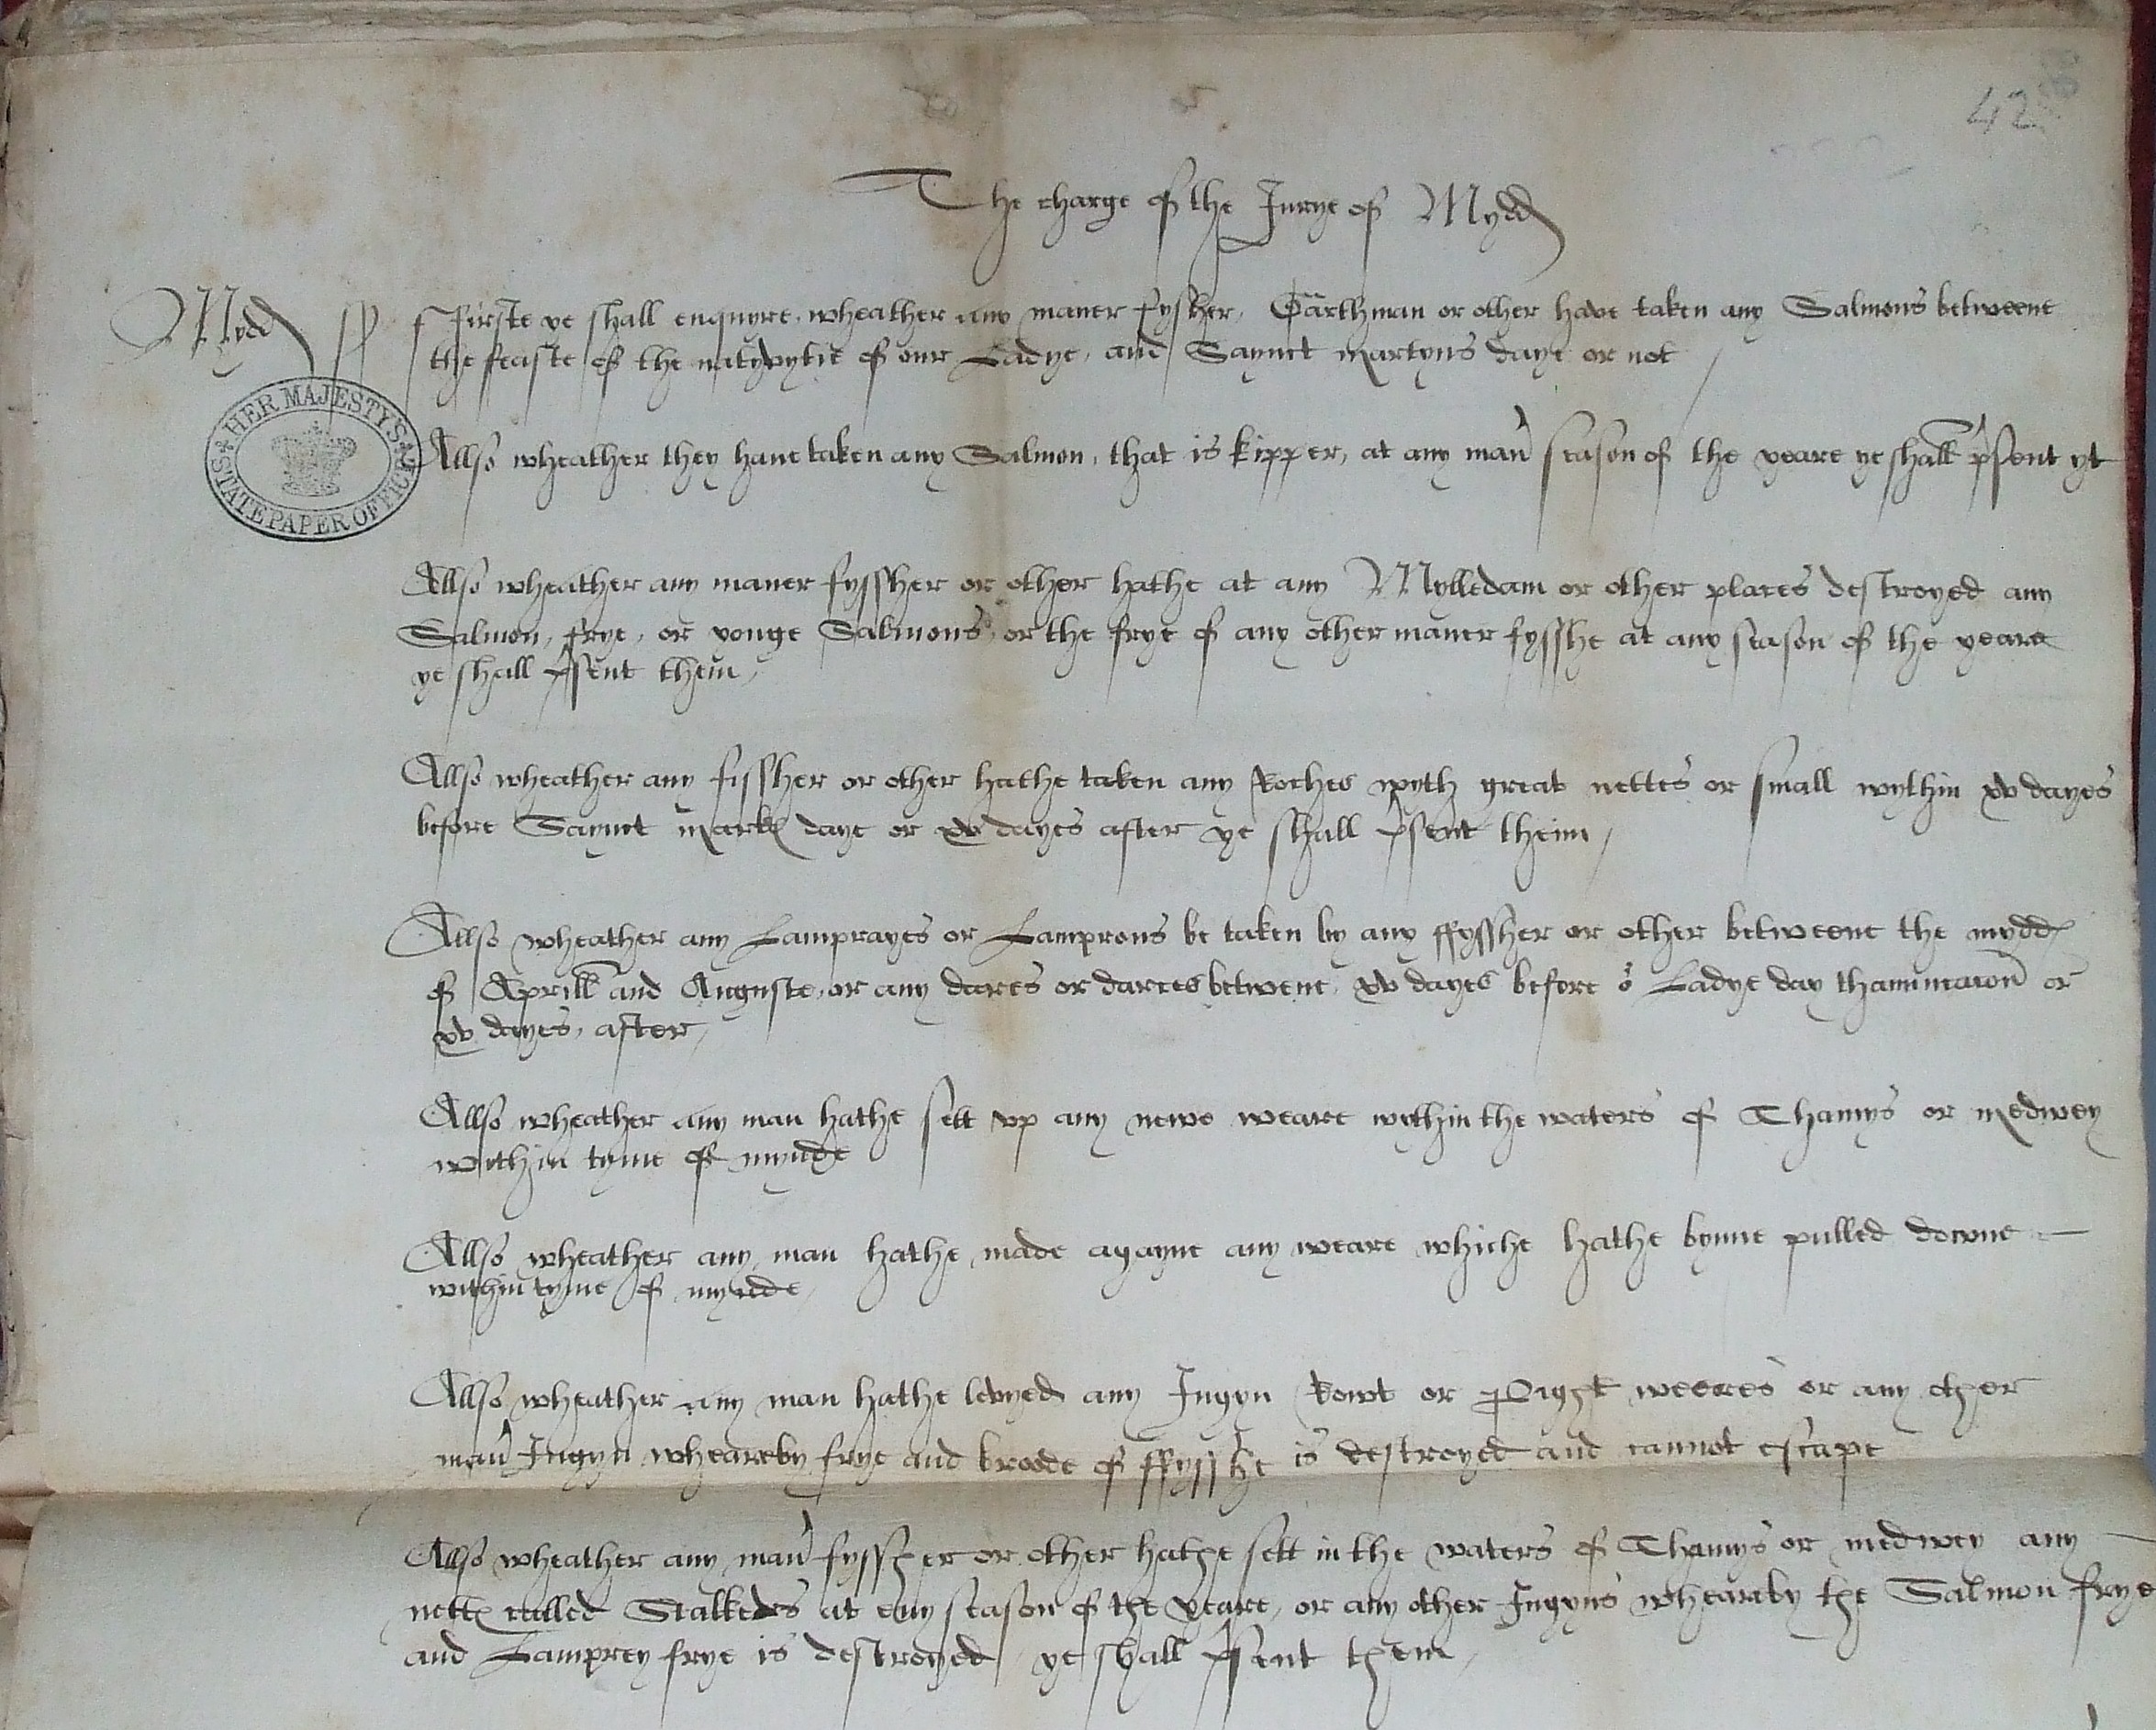 428
The charge of the Jurye of Mydd
Mydd ss Firste ye shall enquyre wheather any maner fysher, Garthman or other have taken any Salmons betweene
the feaste of the natyvytie of our Ladye, and Saynct martyns daye or not
HER MAJESTY'S STATE PAPER OFFICE
Allso wheather they have taken any Salmon, that is kipper, at any man' season of the yeare ye shall p'sent yt
Allso wheather any maner fyssher or other hathe at any Mylledam or other places destroyed any
Salmon, frye, or yonge Salmons, or the frye of any other maner fysshe at any season of the yeare
ye shall p'sent them,
Allso wheather any fissher or other hathe taken any Roches wyth great nettes or small wythin xv dayes
before Saynct mark daye or xv dayes after ye shall p'sent theim,
Allso wheather any Lamprayes or Lamprons be taken by any ffyssher or other betweene the mydd
of Aprill and Auguste, or any dares or darces betwene, xv dayes before o' Ladye day thanunciacon or
xv dayes, after,
Allso wheather any man hathe sett vp any newe weare within the waters of Thamys or medwey
within tyme of mynde
Allso wheather any, man hathe made agayne any weare whiche hathe bynne pulled downe
within tyme of mynde,
Allso wheather any man hathe levyed any Ingyn Rowt or Pight weeres or any other
man' Ingyn wheareby frye and broode of ffysshe is destroyed and cannot escape
Allso wheather any man' fyssher or other hathe sett in the waters of Thamys or medwey any
nett called Stalkers at eny season of the yeare, or any other Ingyns whearby the Salmon frye
and Lamprey frye is destroyed ye shall p'sent them,